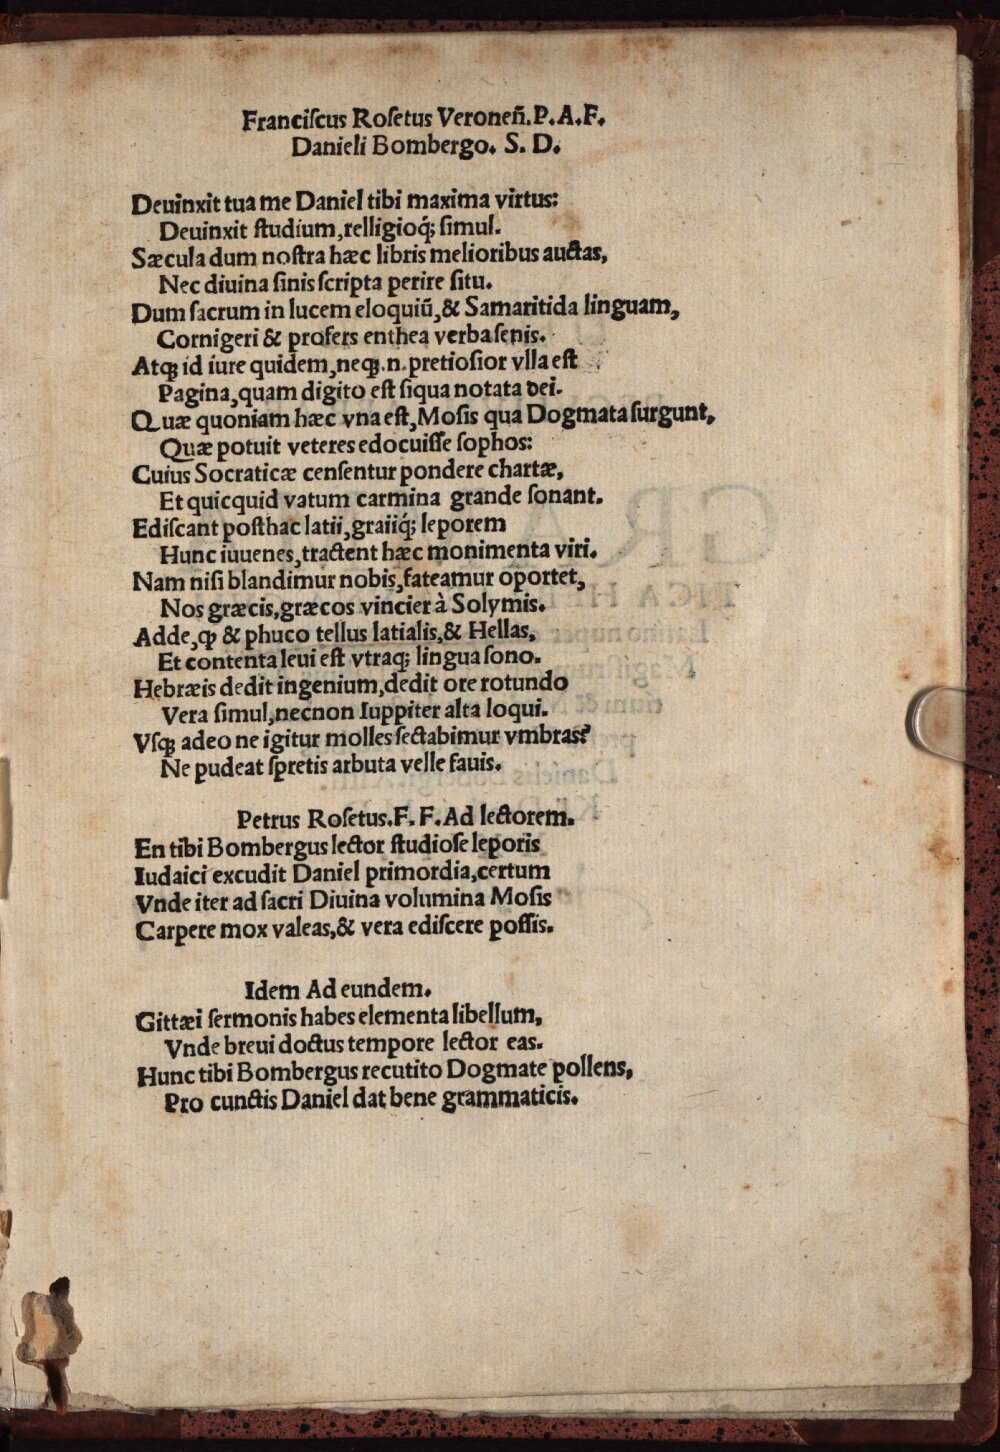 Franciſcus Roſetus Veroneñ.P.A.F.
Danieli Bombergo. S. D.
Deuinxit tua me Daniel tibi maxima virtus:
Deuinxit ſtudium,relligioq́; ſimul.
Sæcula dum noſtra hæc libris melioribus auctas,
Nec diuina ſinis ſcripta perire ſitu.
Dum ſacrum in lucem eloquiũ,& Samaritida linguam,
Cornigeri & profers enthea verba ſenis.
Atqꝫ id iure quidem,neqꝫ.n.pretioſior vlla eſt
Pagina,quam digito eſt ſiqua notata dei.
Quæ quoniam hæc vna eſt,Moſis qua Dogmata ſurgunt,
Quæ potuit veteres edocuiſſe ſophos:
Cuius Socraticæ cenſentur pondere chartæ,
Et quicquid vatum carmina grande ſonant.
Ediſcant poſthac latii,graiiq́; leporem
Hunc iuuenes,tractent hæc monimenta viri.
Nam niſi blandimur nobis,fateamur oportet,
Nos græcis,græcos vincier à Solymis.
Adde,ꝙ & phuco tellus latialis,& Hellas,
Et contenta leui eſt vtraqꝫ lingua ſono.
Hebræis dedit ingenium,dedit ore rotundo
Vera ſimul,necnon Iuppiter alta loqui.
Vſqꝫ adeo ne igitur molles ſectabimur vmbras?
Ne pudeat ſpretis arbuta velle fauis.
Petrus Roſetus.F.F.Ad lectorem.
En tibi Bombergus lector ſtudioſe leporis
Iudaici excudit Daniel primordia,certum
Vnde iter ad ſacri Diuina volumina Moſis
Carpere mox valeas,& vera ediſcere poſſis.
Idem Ad eundem.
Gittæi ſermonis habes elementa libellum,
Vnde breui doctus tempore lector eas.
Hunc tibi Bombergus recutito Dogmate pollens,
Pro cunctis Daniel dat bene grammaticis.